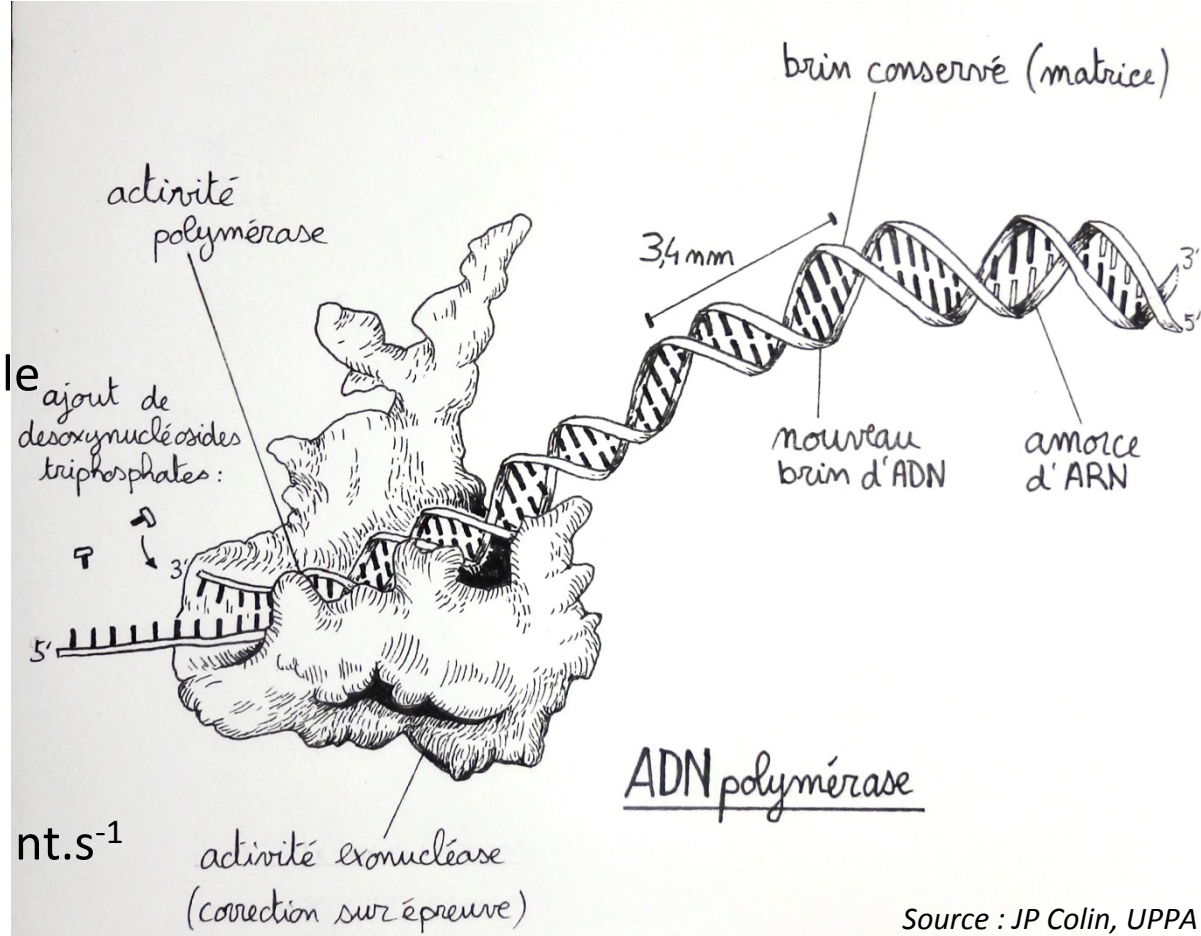 brin conservé (matrice)
activité
polymérase
3,4 nm
3'
5'
le
ajout de
desoxynucléosides
triphosphates :
nouveau
brin d'ADN
amorce
d'ARN
3'
5'
ADN polymérase
nt.s⁻¹
activité exonucléase
(correction sur épreuve)
Source : JP Colin, UPPA